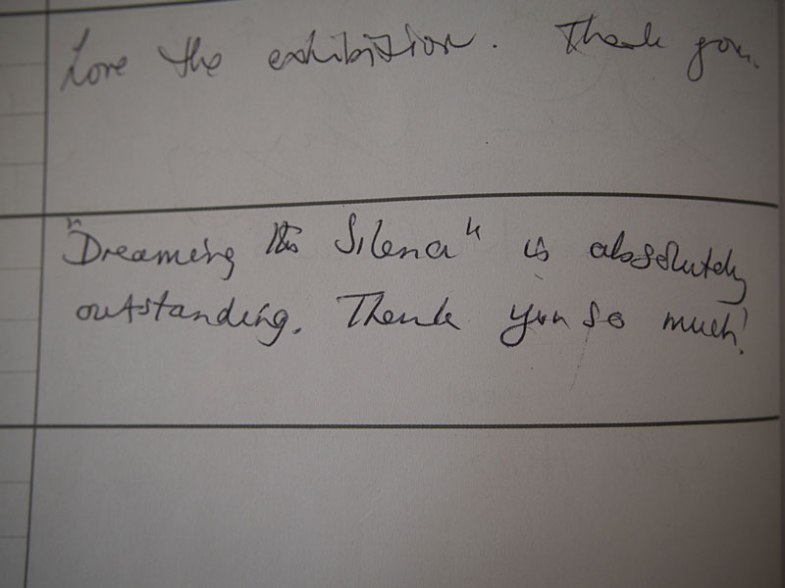 Love the exhibition. Thank you.
"Dreaming the Silence" is absolutely
outstanding. Thank you so much!